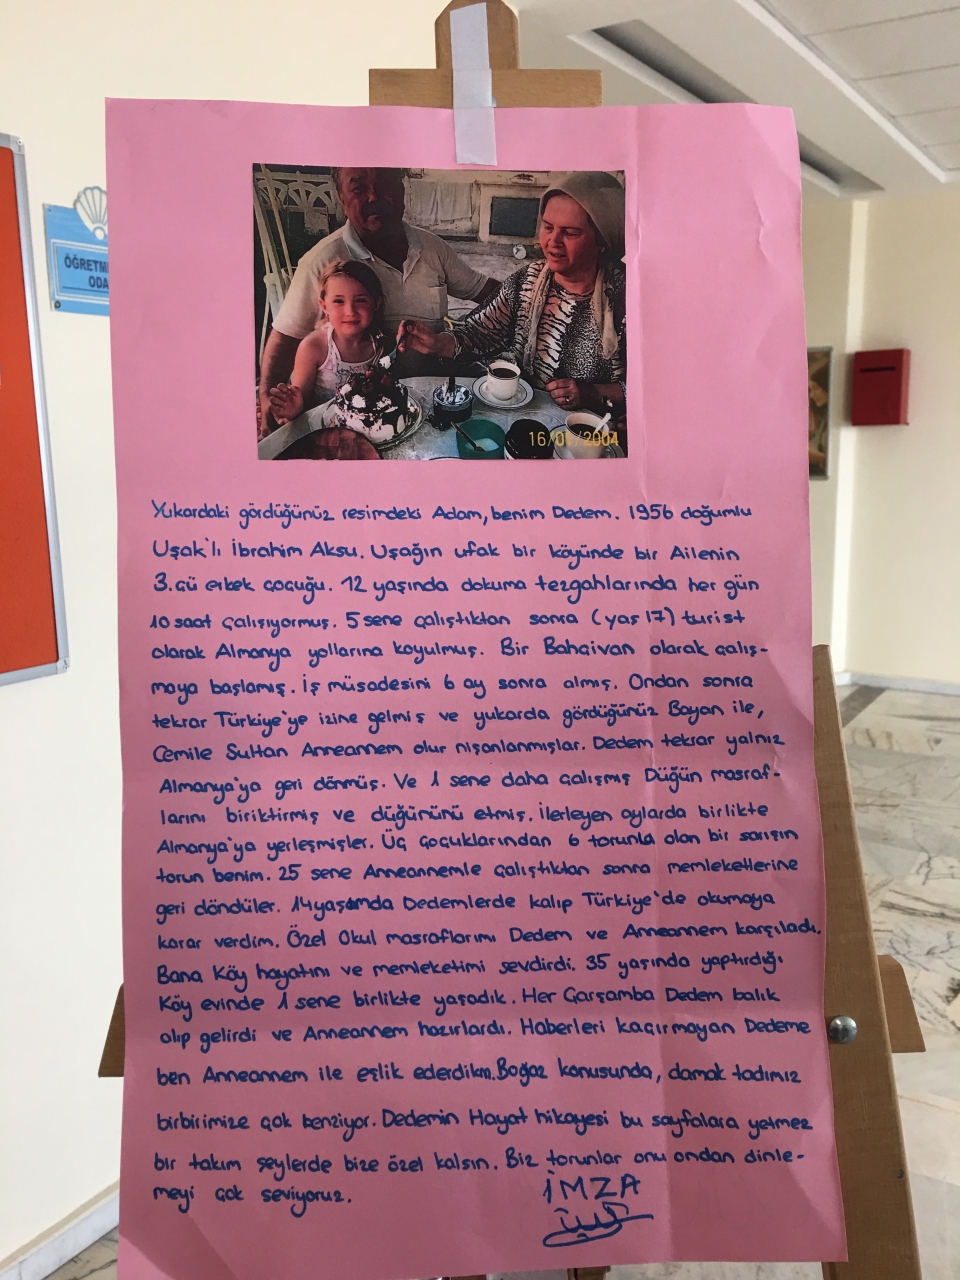 ÖĞRETM
ODA
16/01/2004
Yukardaki gördüğünüz resimdeki Adam, benim Dedem. 1956 doğumlu
Uşak'lı İbrahim Aksu. Uşağın ufak bir köyünde bir Ailenin
3.cü erkek çocuğu. 12 yaşında dokuma tezgahlarında her gün
10 saat çalışıyormuş. 5 sene çalıştıktan sonra (yaş 17) turist
olarak Almanya yollarına koyulmuş. Bir Bahçivan olarak çalış-
maya başlamış. İş müsadesini 6 ay sonra almış. Ondan sonra
tekrar Türkiye'ye izine gelmiş ve yukarda gördüğünüz Bayan ile,
Cemile Sultan Anneannem olur nişanlanmışlar. Dedem tekrar yalnız
Almanya'ya geri dönmüş. Ve 1 sene daha çalışmış Düğün masraf-
larını biriktirmiş ve düğününü etmiş. İlerleyen aylarda birlikte
Almanya'ya yerleşmişler. Üç çocuklarından 6 torunla olan bir sarışın
torun benim. 25 sene Anneannemle çalıştıktan sonra memleketlerine
geri döndüler. 14 yaşımda Dedemlerde kalıp Türkiye'de okumaya
karar verdim. Özel Okul masraflarımı Dedem ve Anneannem karşıladı.
Bana Köy hayatını ve memleketimi sevdirdi. 35 yaşında yaptırdığı
Köy evinde 1 sene birlikte yaşadık. Her Çarşamba Dedem balık
alıp gelirdi ve Anneannem hazırlardı. Haberleri kaçırmayan Dedeme
ben Anneannem ile eşlik ederdik. Boğaz konusunda, damak tadımız
birbirimize çok benziyor. Dedemin Hayat hikayesi bu sayfalara yetmez
bir takım şeylerde bize özel kalsın. Biz torunlar onu ondan dinle-
meyi çok seviyoruz.
İMZA